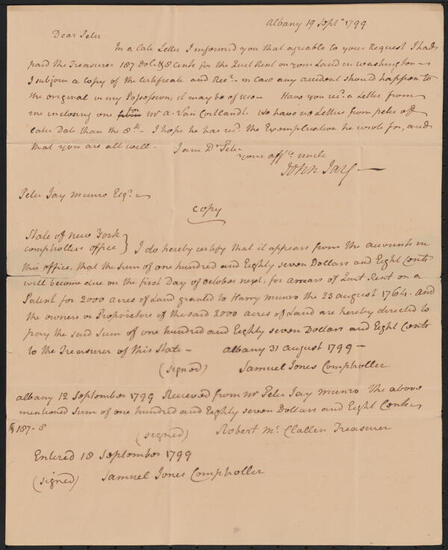 Albany 19 Sept.r 1799
Dear Peter
In a late Letter I informed you that agreable to your Request I had
paid the Treasurer 187 Dol.s & 8 Cents for the Quit Rent on your Land in Washington —
I subjoin a copy of the Certificate and Rec.t in case any accident should happen to
the original in my Possession, it may be of use. Have you rec.d a Letter from
me inclosing one from Mr. A. Van Cortlandt. We have no Letters from Peter of
later Date than the 8th. I hope he has rec.d the Exemplification he wrote for, and
that you are all well.
I am Dr. Peter
your aff.te uncle
John Jay —
Peter Jay Munro Esq.r —
Copy
State of New York
Comptrollers office } I do hereby certify that it appears from the accounts in
this office, that the Sum of one hundred and Eighty seven Dollars and Eight Cents
will become due on the first Day of october next, for arrears of Quit Rent on a
Patent for 2000 acres of Land granted to Harry Munro the 23 august 1764. And
the owners or Proprietors of the said 2000 acres of Land are hereby directed to
pay the said Sum of one hundred and Eighty seven Dollars and Eight Cents
to the Treasurer of this State — albany 31 august 1799 —
(signed) Samuel Jones Comptroller
albany 12 September 1799 Received from Mr Peter Jay Munro the above
mentioned Sum of one hundred and Eighty seven Dollars and Eight Cents
$187-8
(signed) Robert Mc. Clallen Treasurer
Entered 18 September 1799
(signed) Samuel Jones Comptroller